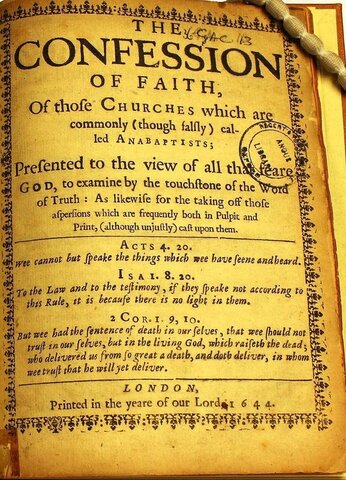 THE
CONFESSION
OF FAITH,
Of thoſe CHURCHES which are
commonly (though falſly) cal-
led ANABAPTISTS;
Preſented to the view of all that feare
GOD, to examine by the touchſtone of the Word
of Truth: As likewiſe for the taking off thoſe
aſperſions which are frequently both in Pulpit and
Print, (although unjuſtly) caſt upon them.
ACTS 4. 20.
Wee cannot but ſpeake the things which wee have ſeene and heard.
ISAI. 8. 20.
To the Law and to the teſtimony, if they ſpeake not according to
this Rule, it is becauſe there is no light in them.
2 COR. 1. 9, 10.
But wee had the ſentence of death in our ſelves, that wee ſhould not
truſt in our ſelves, but in the living God, which raiſeth the dead;
who delivered us from ſo great a death, and doth deliver, in whom
wee truſt that he will yet deliver.
LONDON,
Printed in the yeare of our Lord, 1644.
ANGUS
LIBRARY